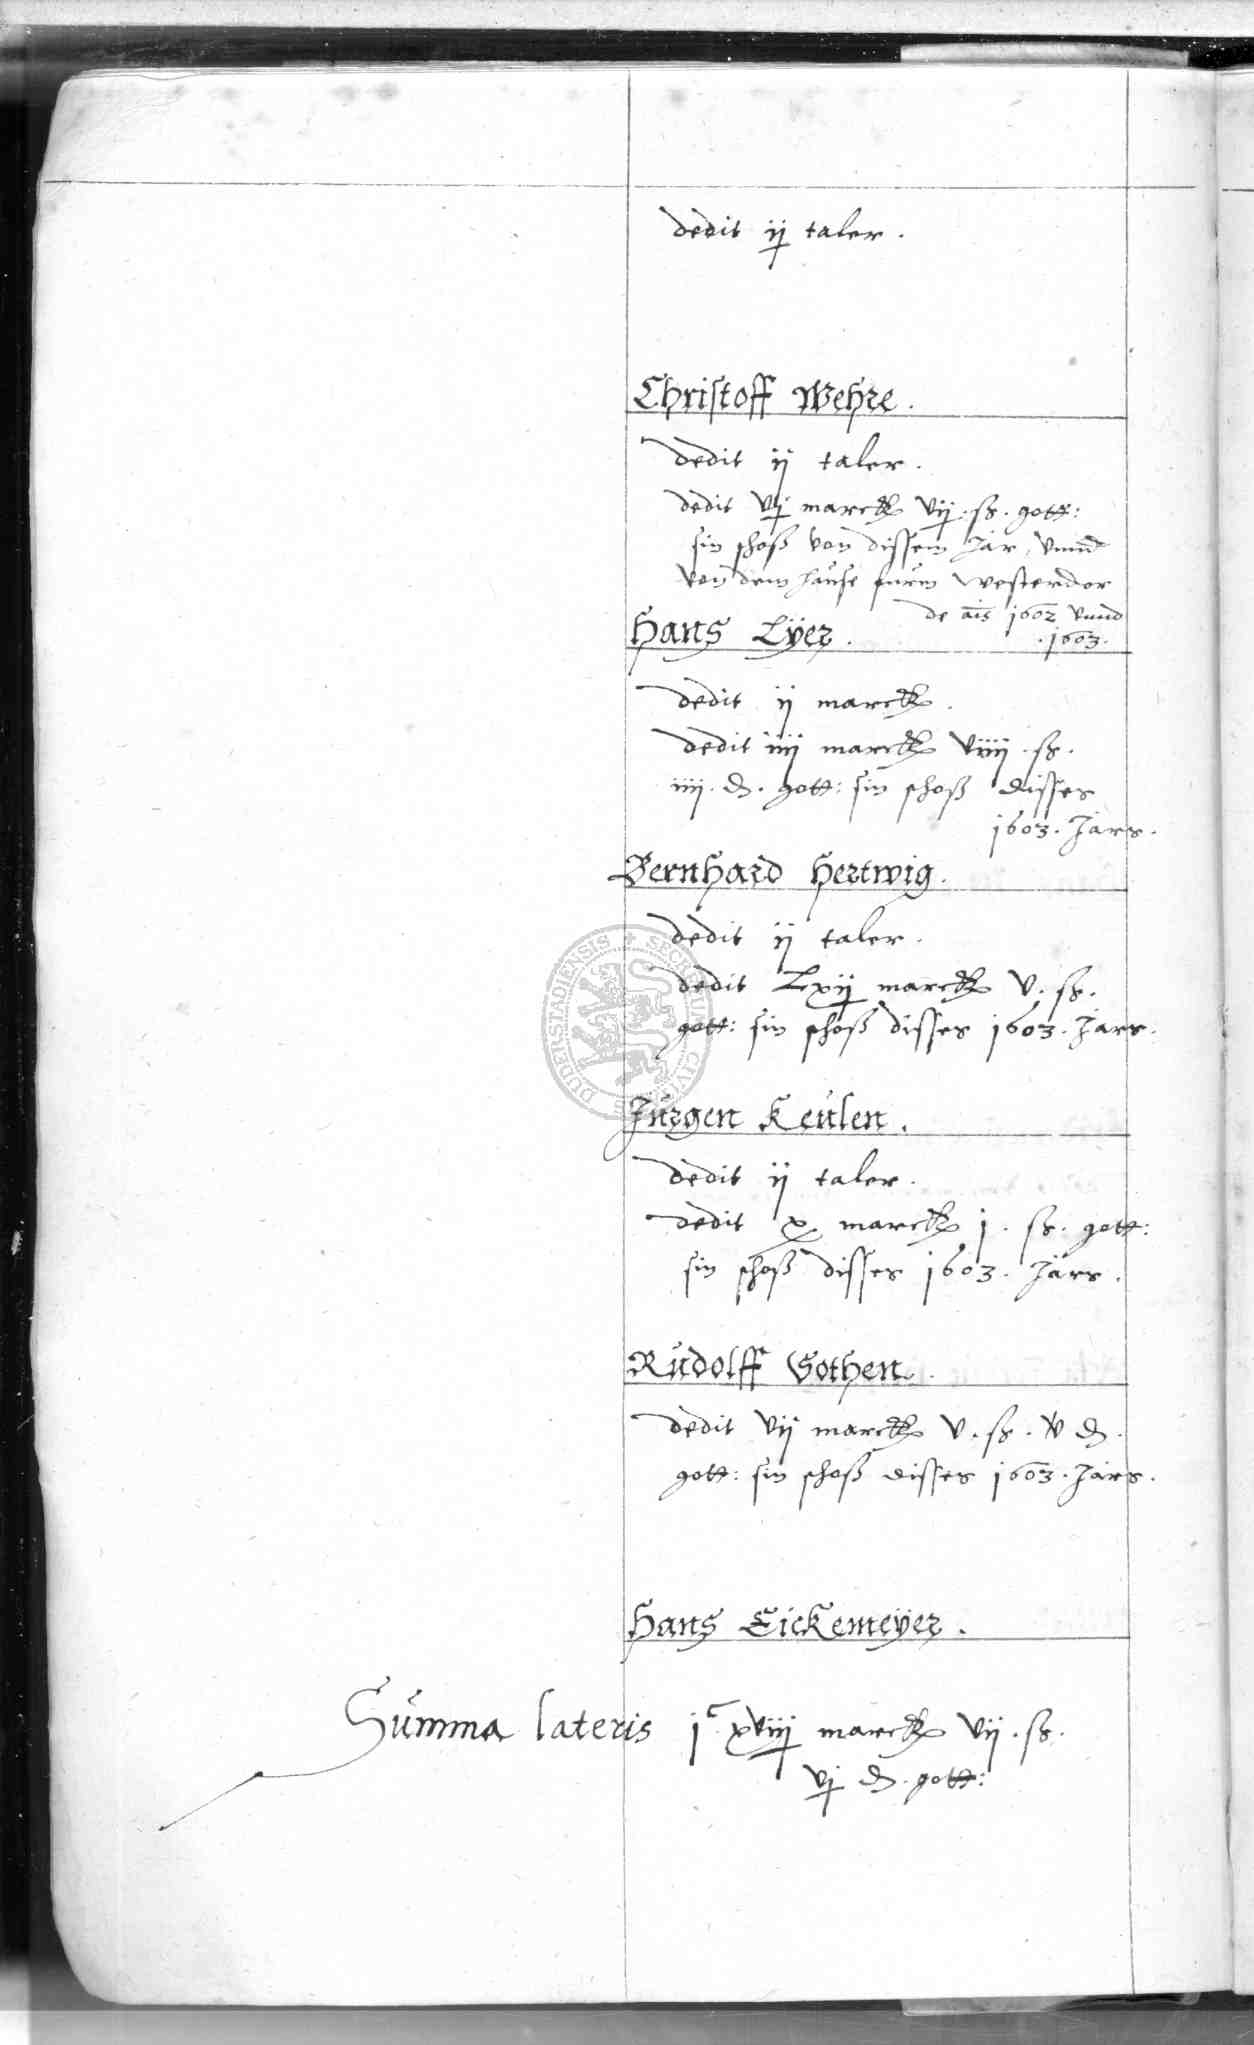 dedit ij taler.
Christoff Wehre.
dedit ij taler.
dedit vj marck vij. ß. gott:
sin schoß von dissem Jar, vnnd
von dem hause furm westerdor
de ais 1602 vnnd
.1603.
Hans Lÿer.
dedit ij marck.
dedit iiij marck viiij. ß.
iiij. d. gott: sin schoß disses
1603. Jars.
Bernhard Hertwig.
dedit ij taler.
dedit Lxij marck v. ß.
gott: sin schoß disses 1603. Jars.
Jurgen Keulen.
dedit ij taler.
dedit x marck j. ß. gott:
sin schoß disses 1603. Jars.
Rudolff Gothen.
dedit vij marck v. ß. v d.
gott: sin schoß disses 1603. Jars.
Hans Eickemeÿer.
Summa lateris jc xviij marck vij. ß.
vj d. gott:
SECRETUM CIVITATIS DUDERSTADIENSIS